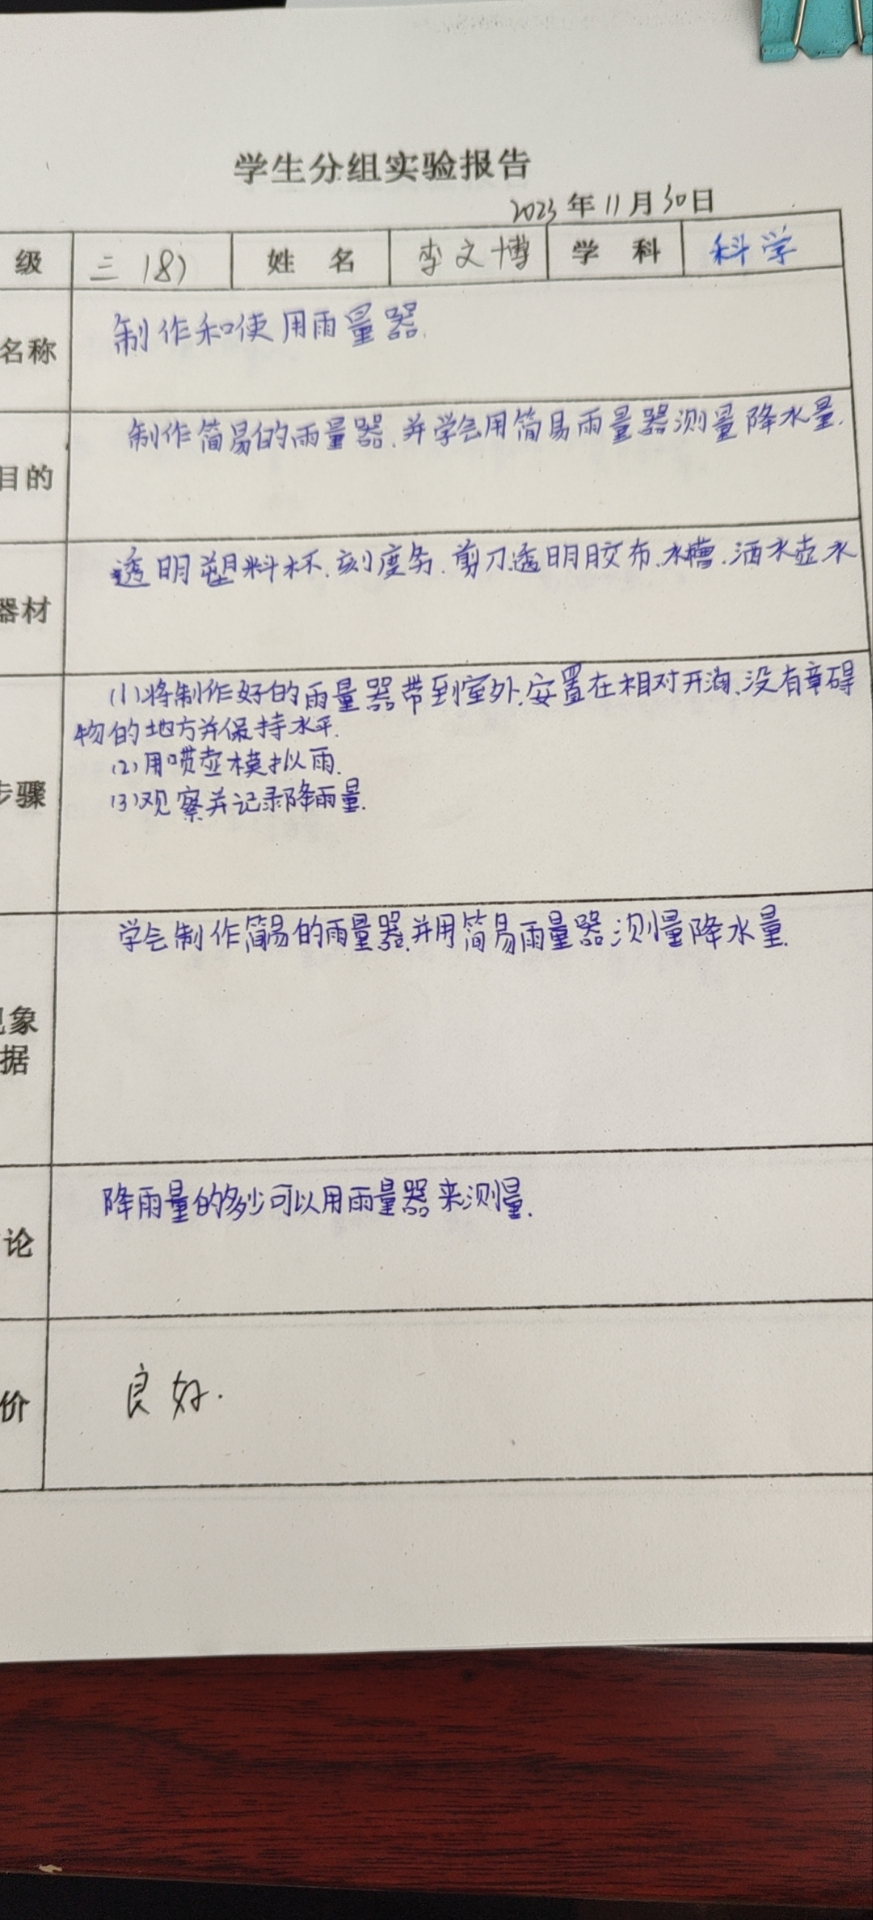 学生分组实验报告
2023年11月30日
级 三(8) 姓名 李文博 学科 科学
名称 制作和使用雨量器.
目的 制作简易的雨量器.并学会用简易雨量器测量降水量.
器材 透明塑料杯.刻度条.剪刀.透明胶布.水槽.洒水壶水
步骤 (1)将制作好的雨量器带到室外.安置在相对开阔、没有障碍
物的地方并保持水平.
(2)用喷壶模拟雨.
(3)观察并记录降雨量.
现象
据 学会制作简易的雨量器.并用简易雨量器测量降水量.
论 降雨量的多少可以用雨量器来测量.
价 良好.